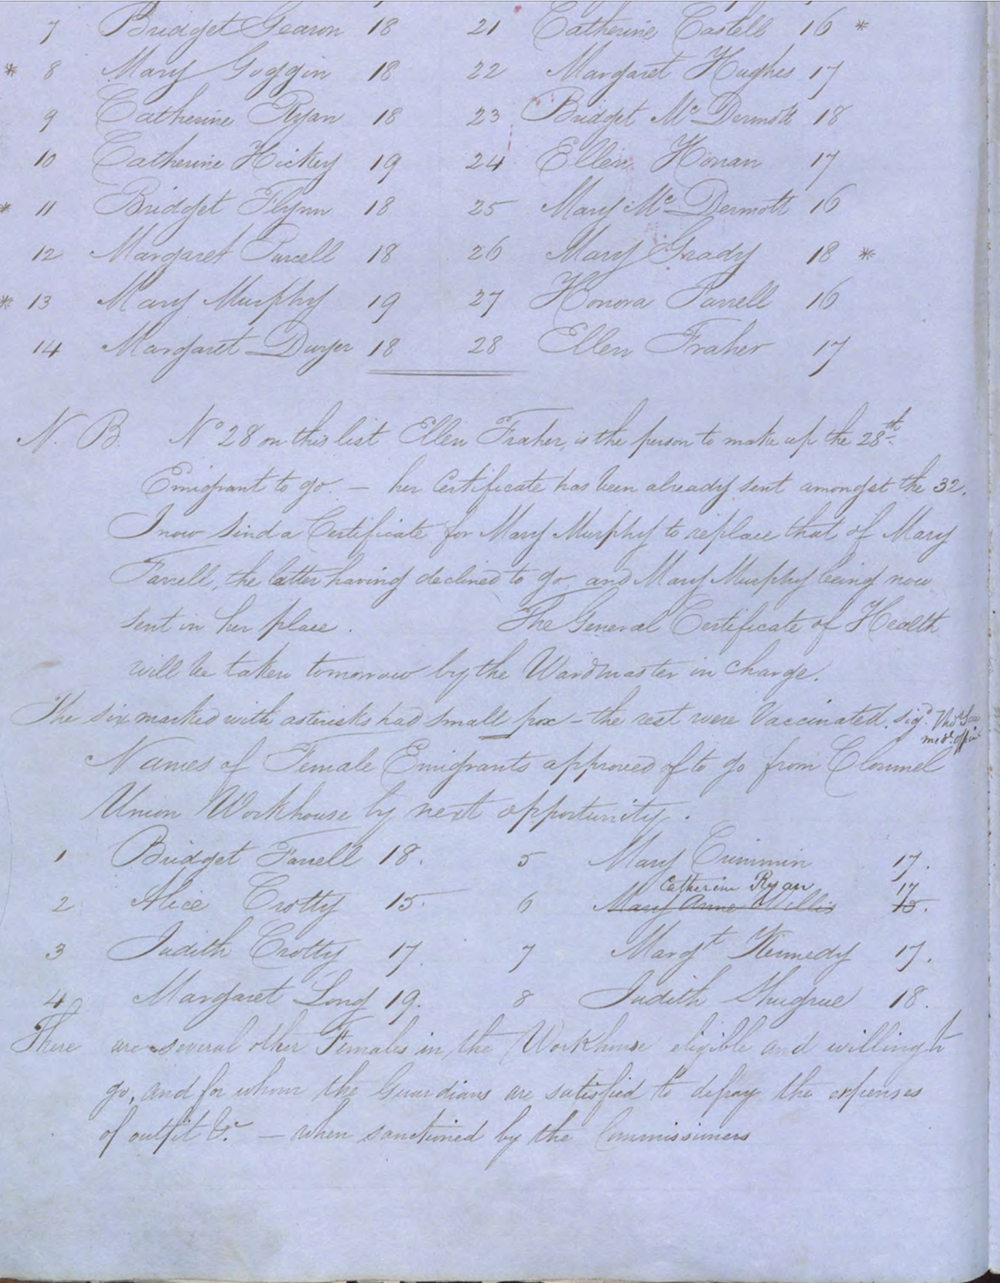 7 Bridget Gearon 18 21 Catherine Costell 16 *
* 8 Mary Goggin 18 22 Margaret Hughes 17
9 Catherine Ryan 18 23 Bridget McDermott 18
10 Catherine Hickey 19 24 Ellen Honan 17
* 11 Bridget Flynn 18 25 Mary McDermott 16
12 Margaret Purcell 18 26 Mary Grady 18 *
* 13 Mary Murphy 19 27 Honora Farrell 16
14 Margaret Dwyer 18 28 Ellen Fraher 17
N. B. No 28 on this list Ellen Fraher, is the person to make up the 28th
Emigrant to go. — her Certificate has been already sent amongst the 32.
I now send a Certificate for Mary Murphy to replace that of Mary
Farrell, the latter having declined to go and Mary Murphy being now
sent in her place. The General Certificate of Health
will be taken tomorrow by the Wardmaster in charge.
The six marked with asterisks had small pox – the rest were Vaccinated. sigd.
medl. Offr.
Names of Female Emigrants approved of to go from Clonmel
Union Workhouse by next opportunity.
1 Bridget Farrell 18. 5 Mary Crimmin 17.
Catherine Ryan 17
2 Alice Crotty 15. 6 Mary Anne Willis 15.
3 Judith Crotty 17. 7 Margt Kennedy 17.
4 Margaret Long 19. 8 Judith Shugrue 18.
There are several other Females in the Workhouse eligible and willing to
go, and for whom the Guardians are satisfied to defray the expenses
of outfit &c. — when sanctioned by the Commissioners